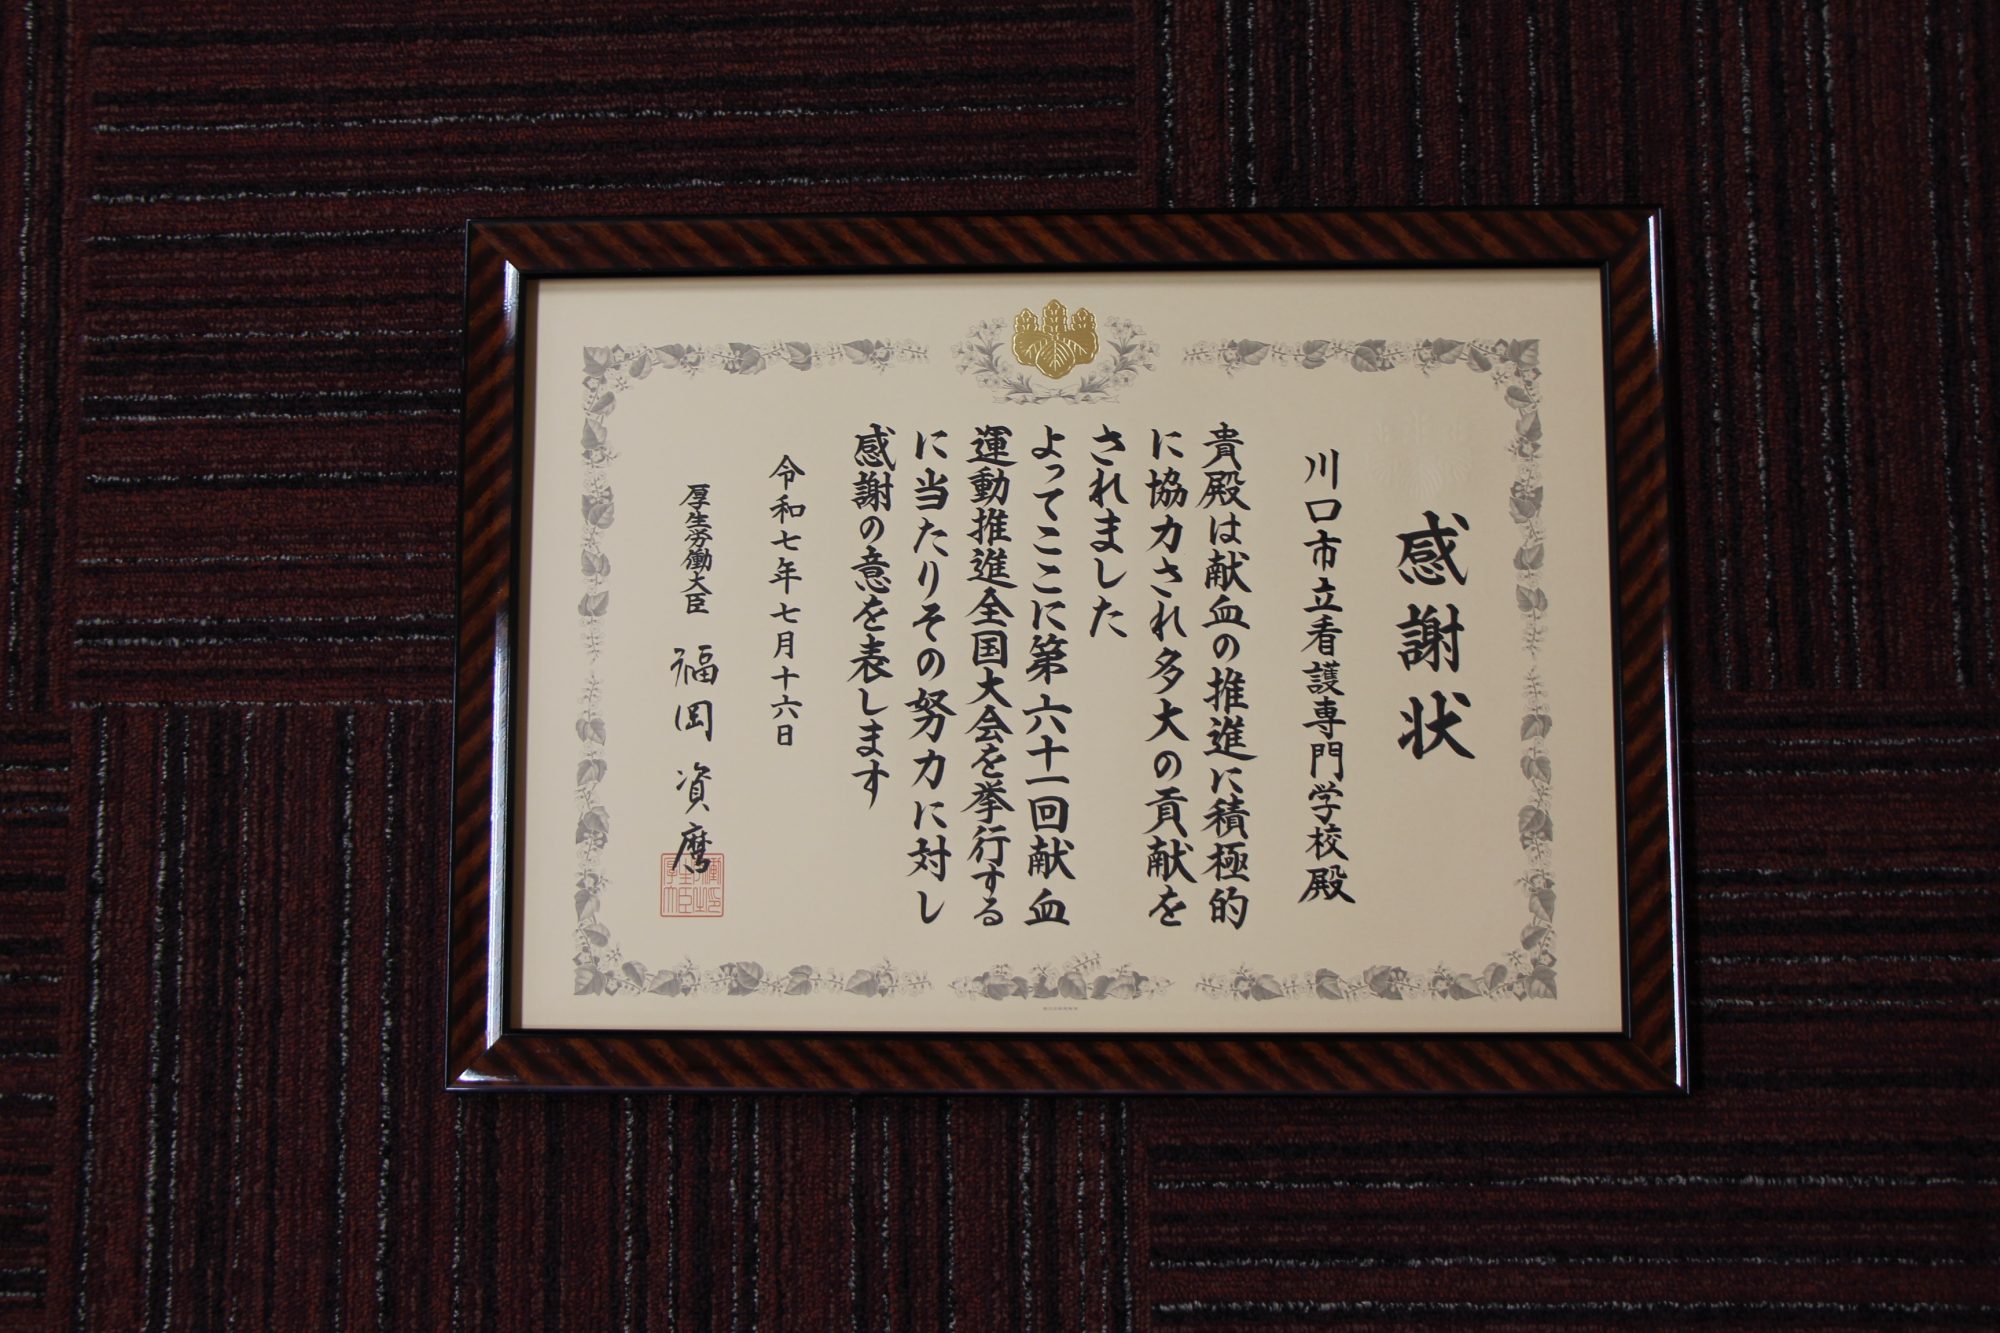 感謝状
川口市立看護専門学校殿
貴殿は献血の推進に積極的
に協力され多大の貢献を
されました
よってここに第六十一回献血
運動推進全国大会を挙行する
に当たりその努力に対し
感謝の意を表します
令和七年七月十六日
厚生労働大臣 福岡資麿